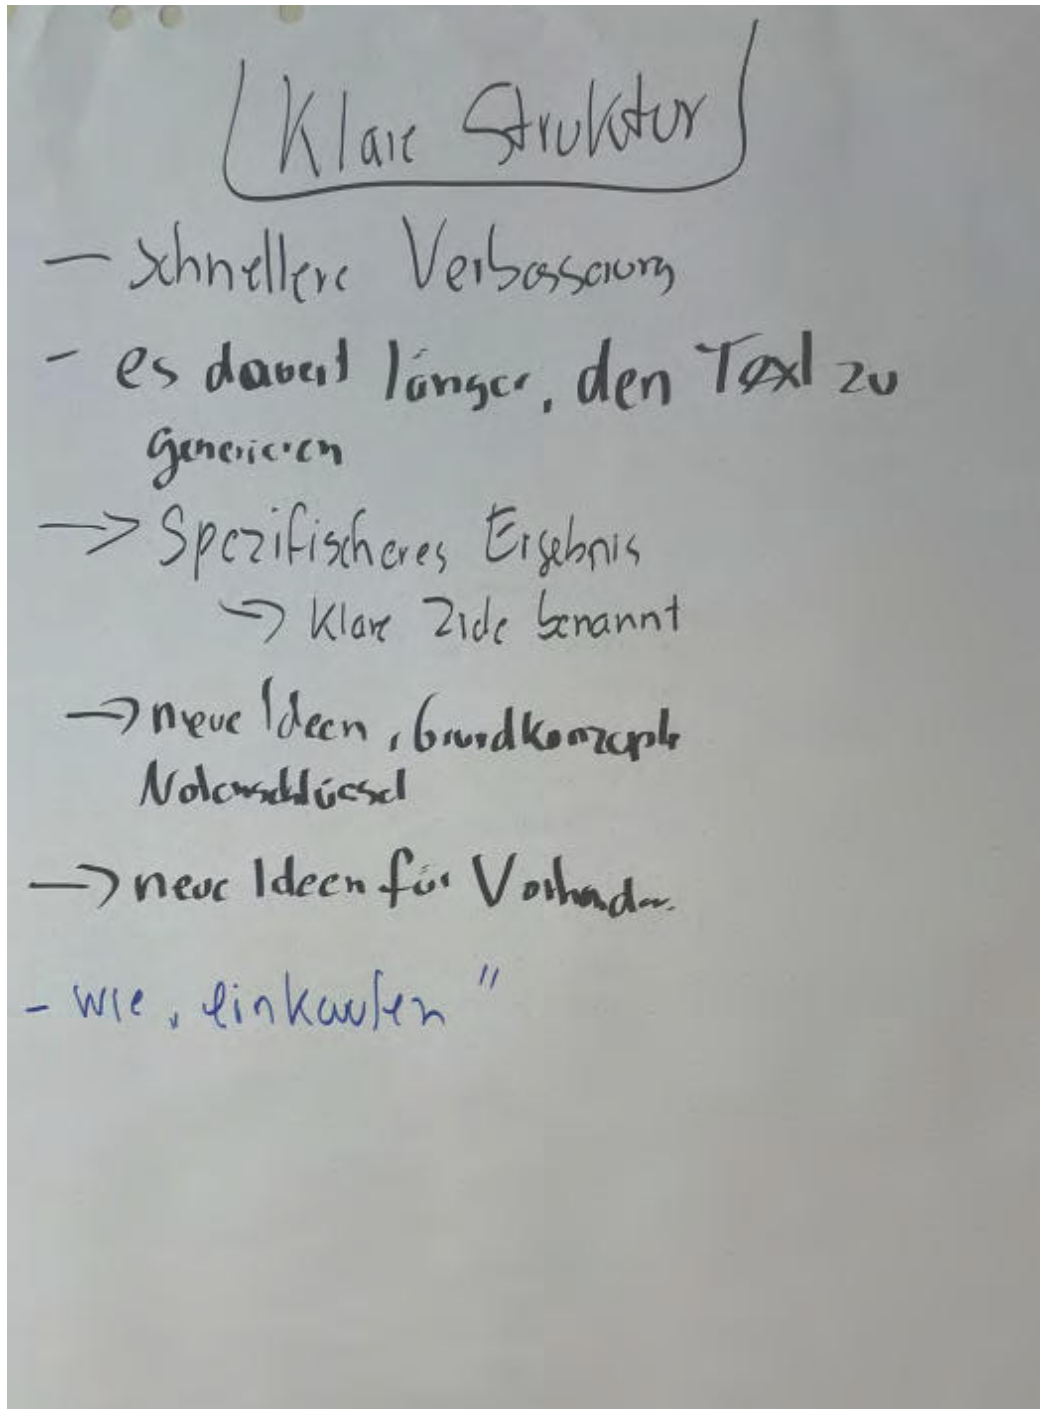 Klare Struktur
- schnellere Verbesserung
- es dauert länger, den Text zu
generieren
-> Spezifischeres Ergebnis
-> Klare Ziele benannt
-> neue Ideen, Grundkonzepte
Notenschlüssel
-> neue Ideen für
- wie „einkaufen"